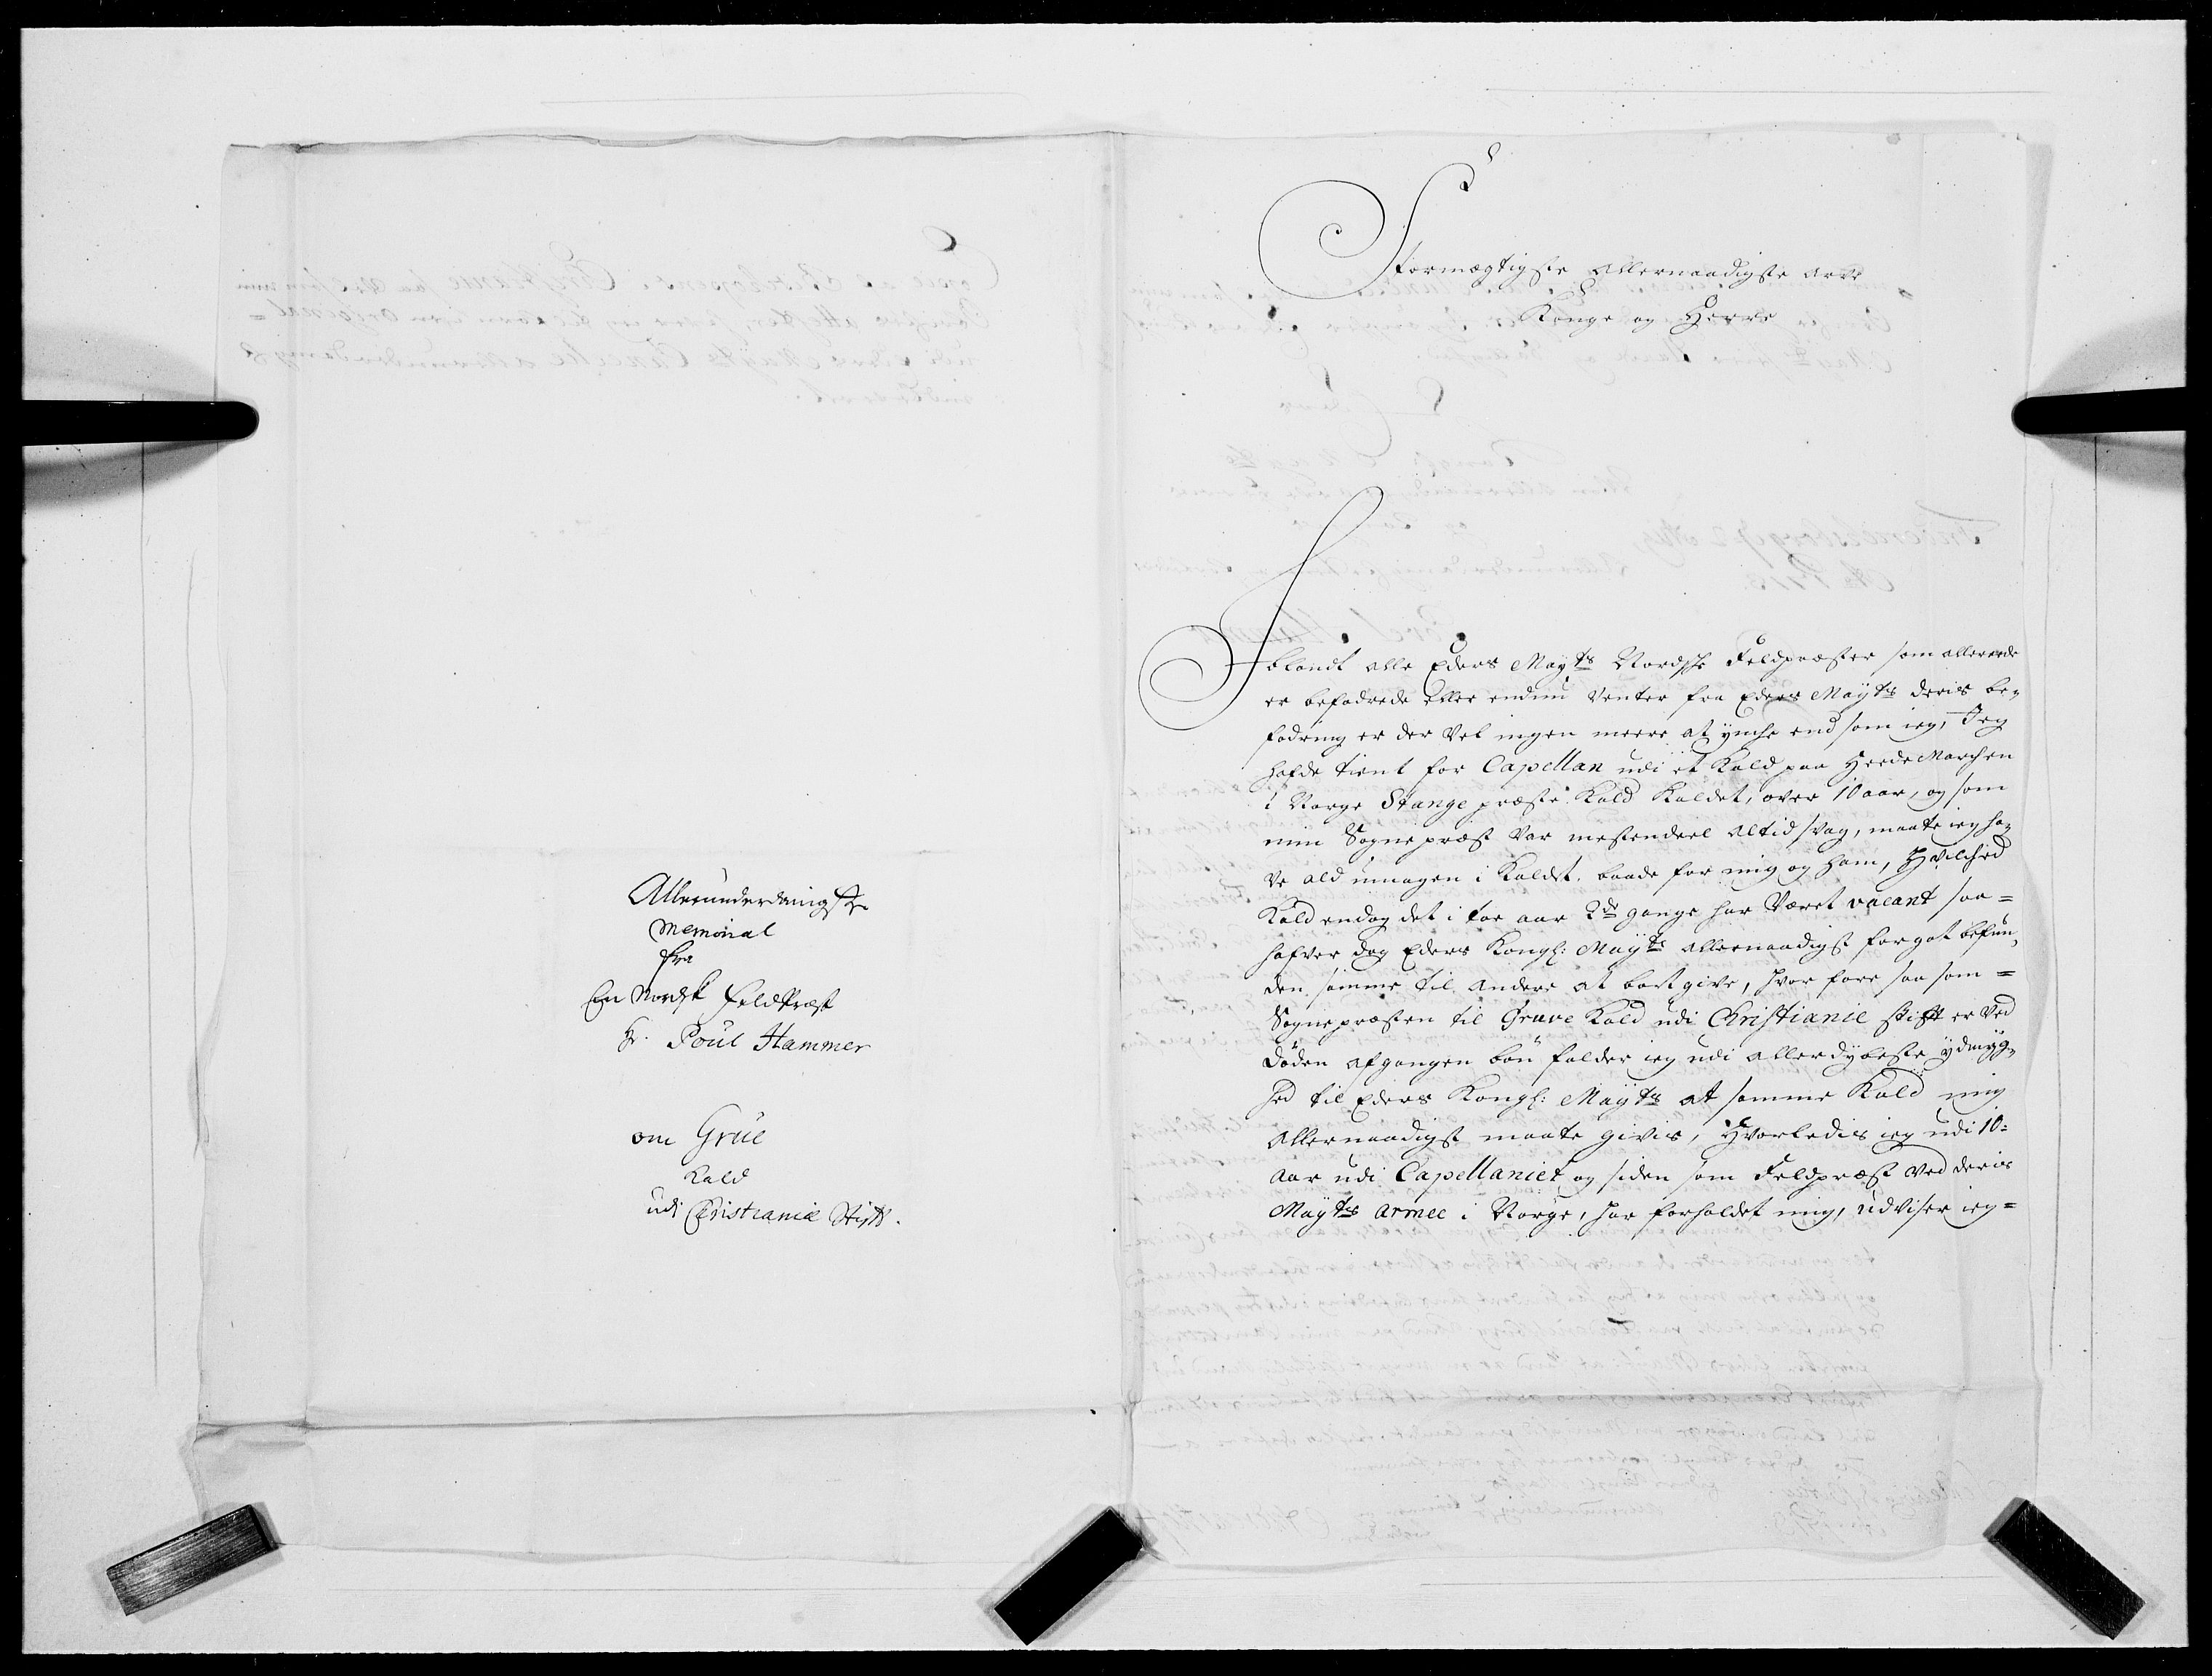 Allerunderdanigste
Memorial
fra
En Norsk feldPræst
Hr. Poul Hammer
om Grüe
Kald
udi Christianiæ Stift.
Stormægtigste Allernaadigste Arve
Konge og Herre
Iblandt alle Eders Maÿts Nordshe Feldpræster som allereede
er befodrede eller endnu Venter fra Eders Maÿts deris be-
fodring er der vel ingen meere at ÿnche end som ieg, Jeg
hafde tient for Capellan udi et Kald paa Heede Marchen
i Norge Stange præste Kald Kaldet, over 10 aar, og som
min Sognepræst var mestendeel altid svag, maate ieg ha-
ve ald umagen i Kaldet baade for mig og ham, Hvilched
Kald endog det i toe aar 2de gange har Været vacant saa=
hafver dog Eders Kongl: Maÿts allernaadigst for got befun-
den samme til andere at bort give, hvor fore saa som =
Sognepræsten til Gruve Kald udi Christianie stift er Ved
Döden afgangen bön falder ieg udi allerdÿbeste ÿdmÿg-
hed til Eders Kongl: Maÿts at samme Kald mig
allernaadigst maate givis, Hvorledis ieg udi 10:
aar udi Capellaniet og siden som Feldpræst ved deris
Maÿts Armee i Norge, har forholdet mig, udviser ieg=